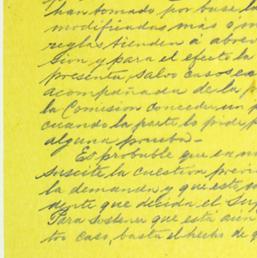 han tomado por base la
modificadas más o m
reglas tienden á abrev
ción y para el efecto la
presenta, salvo casos ex
acompañada de la p
la Comisión conceder un p
cuando la parte lo pide p
alguna prueba.-
Es probable que en un
suscite la cuestión previ
la demanda y que esta
dente que decida el Sup
Para sostener que está aún
tos caso, basta el hecho de q